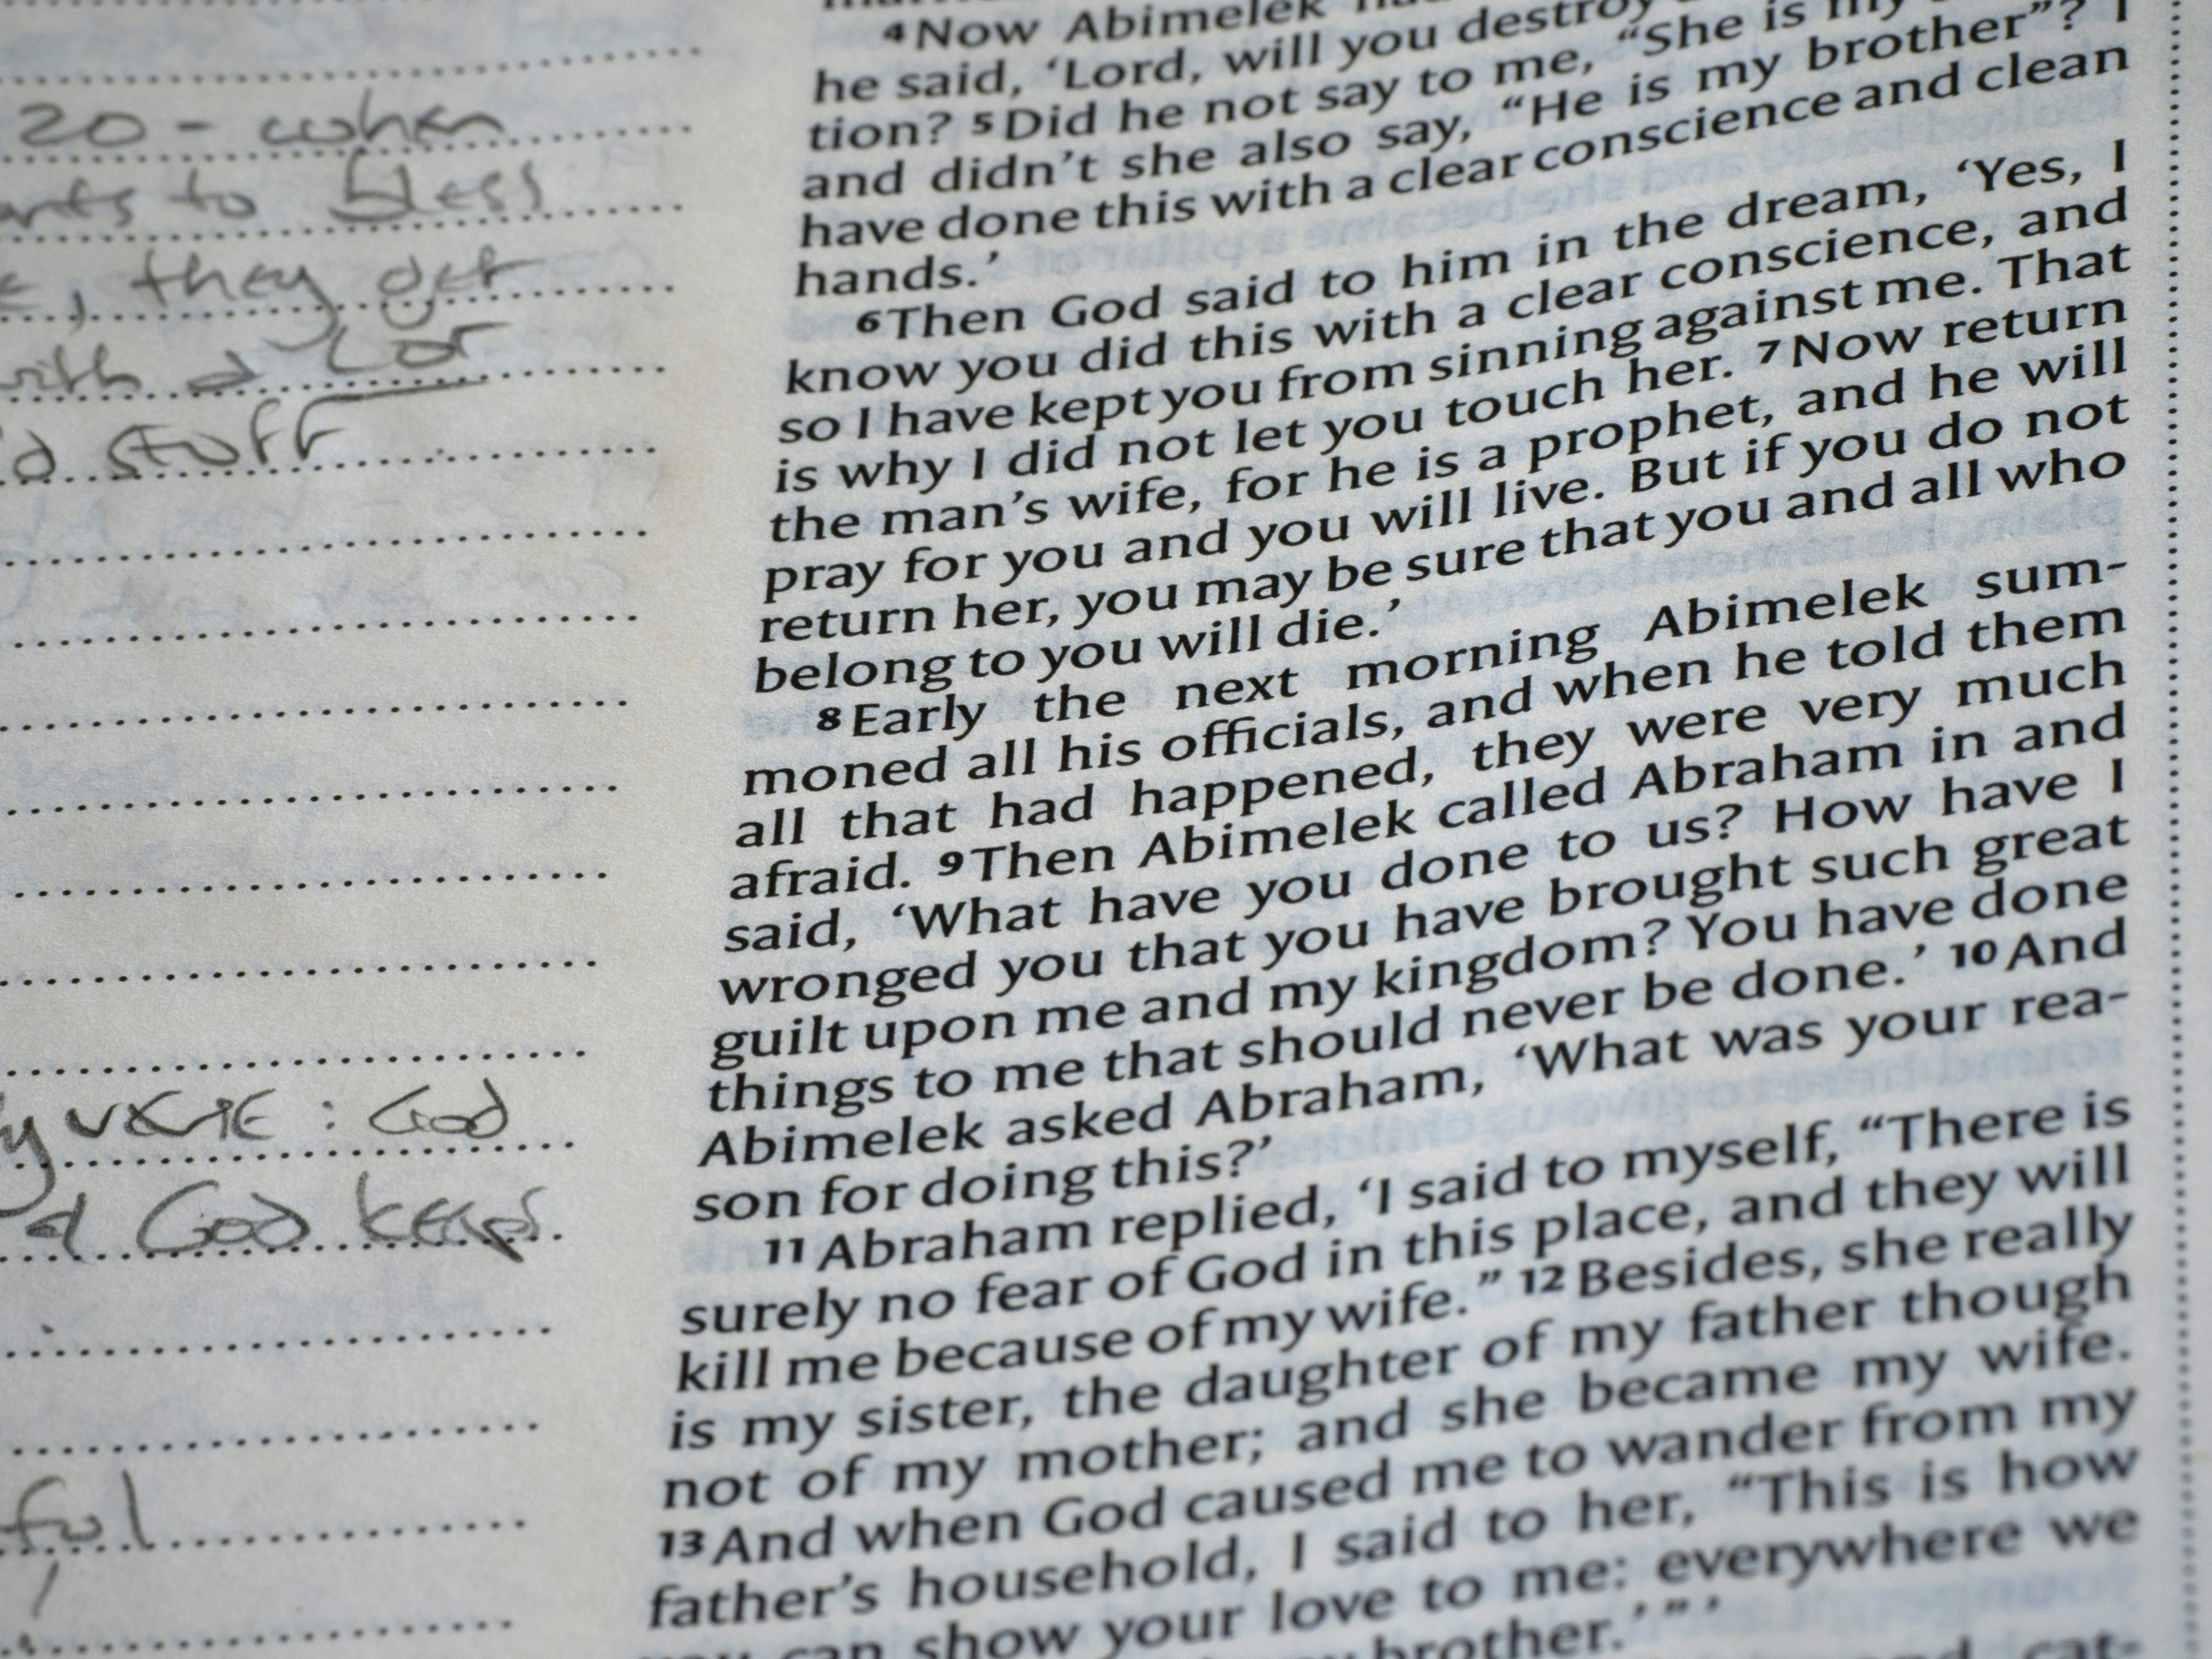 20 - when
to bless
, they get
with a lot
stuff
verse : God
God keeps
4 Now Abimelek
he said, ‘Lord, will you destroy
tion? 5 Did he not say to me, “She is my
and didn’t she also say, “He is my brother”? I
have done this with a clear conscience and clean
hands.’
6 Then God said to him in the dream, ‘Yes, I
know you did this with a clear conscience, and
so I have kept you from sinning against me. That
is why I did not let you touch her. 7 Now return
the man’s wife, for he is a prophet, and he will
pray for you and you will live. But if you do not
return her, you may be sure that you and all who
belong to you will die.’
8 Early the next morning Abimelek sum-
moned all his officials, and when he told them
all that had happened, they were very much
afraid. 9 Then Abimelek called Abraham in and
said, ‘What have you done to us? How have I
wronged you that you have brought such great
guilt upon me and my kingdom? You have done
things to me that should never be done.’ 10 And
Abimelek asked Abraham, ‘What was your rea-
son for doing this?’
11 Abraham replied, ‘I said to myself, “There is
surely no fear of God in this place, and they will
kill me because of my wife.” 12 Besides, she really
is my sister, the daughter of my father though
not of my mother; and she became my wife.
13 And when God caused me to wander from my
father’s household, I said to her, “This is how
you can show your love to me: everywhere we
brother.’ ” ’